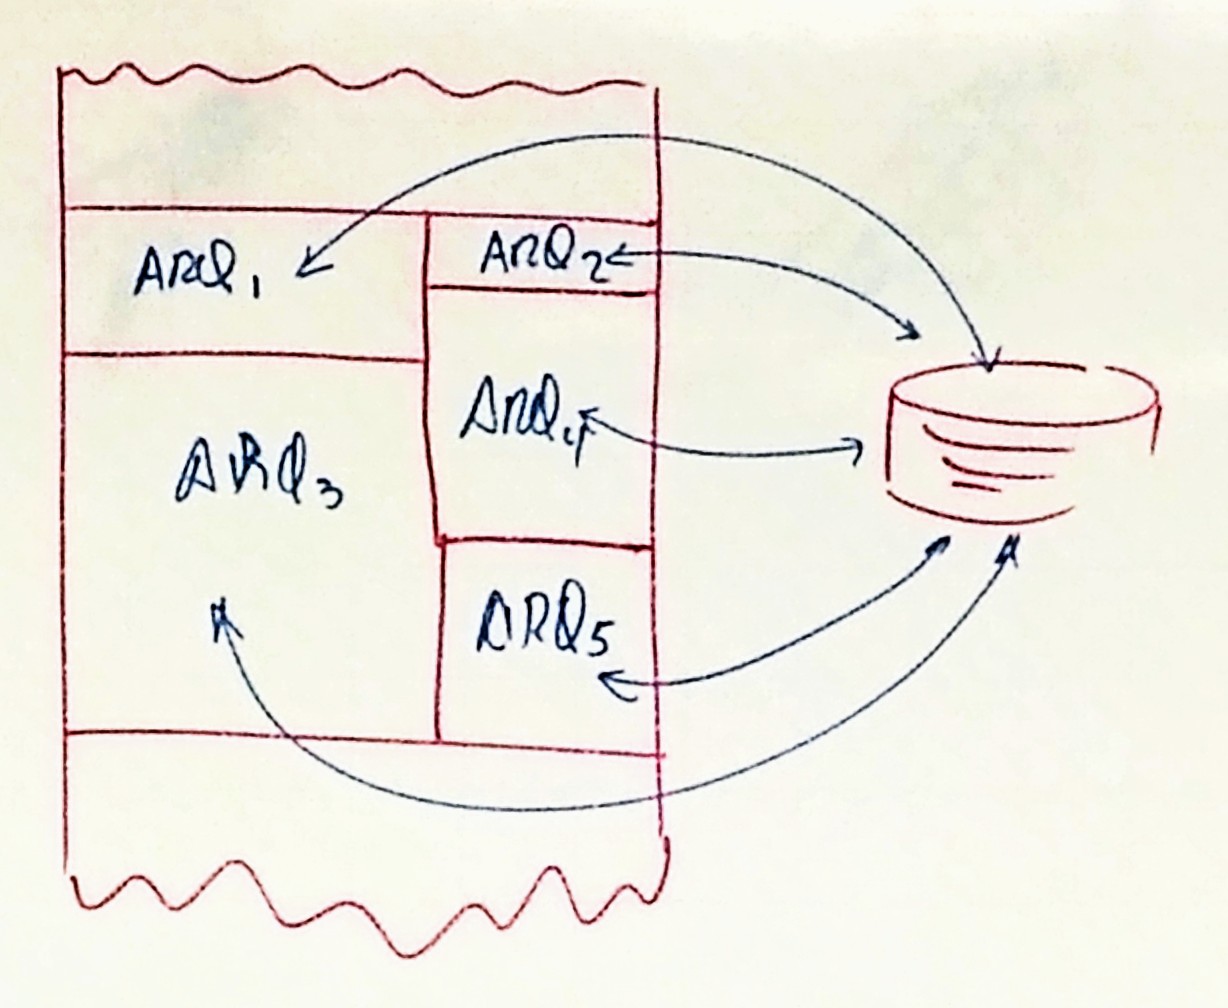 ARQ1
ARQ2
ARQ3
ARQ4
ARQ5